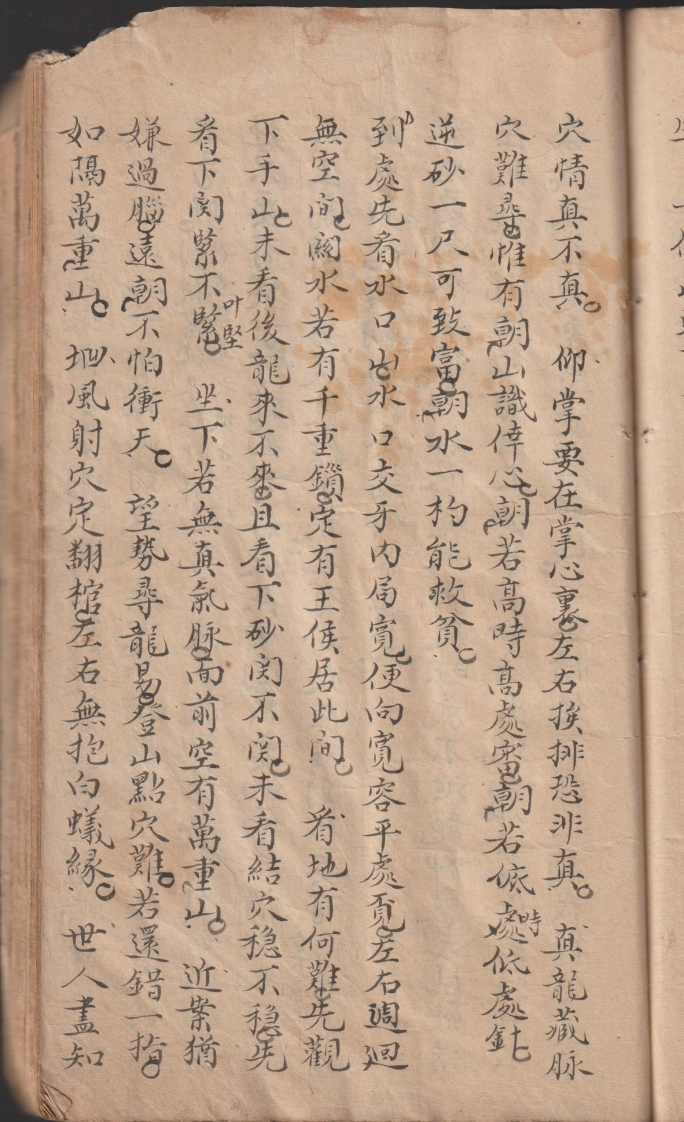 穴情真不真。仰掌要在掌心裏左右挨排恐非真。真龍藏脉
穴難尋惟有朝山識倖心朝若高時高處審朝若低處時低處針
逆砂一尺可致富朝水一杓能救貧。
到處先看水口山水口交牙內局寬便向寬容平處覓左右週迴
無空间。闗水若有千重鎖定有王侯居此间。看地有何難先觀
下手山未看後龍來不來且看下砂関不関。未看結穴稳不稳先
看下関緊不緊叶堅。坐下若無真氣脉面前空有萬重山。近案猶
嫌過腦遠朝不怕衝天。望勢尋龍易登山點穴難。若還錯一指。
如隔萬重山。坳風射穴定翻棺左右無抱白蟻緣。世人盡知